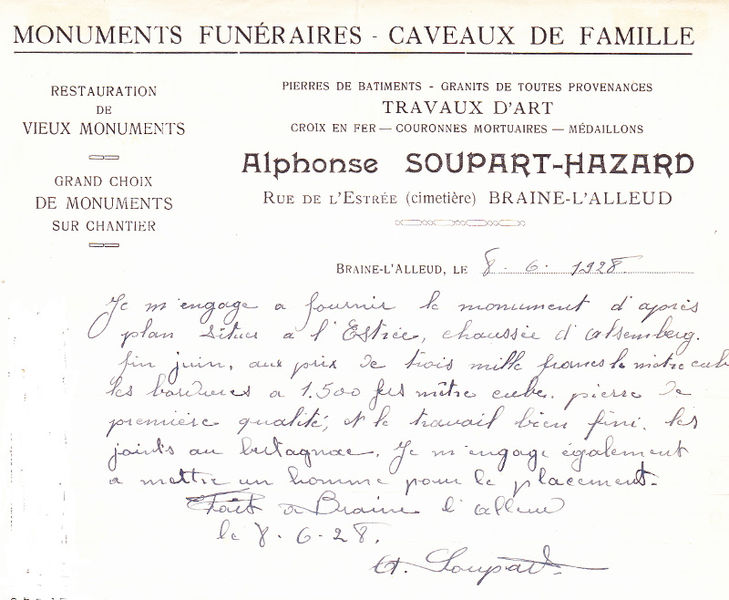 MONUMENTS FUNÉRAIRES - CAVEAUX DE FAMILLE
RESTAURATION
DE
VIEUX MONUMENTS
GRAND CHOIX
DE MONUMENTS
SUR CHANTIER
PIERRES DE BATIMENTS - GRANITS DE TOUTES PROVENANCES
TRAVAUX D'ART
CROIX EN FER — COURONNES MORTUAIRES — MÉDAILLONS
Alphonse SOUPART-HAZARD
RUE DE L'ESTRÉE (cimetière) BRAINE-L'ALLEUD
BRAINE-L'ALLEUD, LE 8. 6. 1928.
Je m'engage a fournir le monument d'après
plan situé a l'Estrée, chaussée d'alsemberg.
fin juin, aux prix de trois mille francs le mètre cube
les bordures a 1.500 frs mètre cube. pierre de
première qualité, et le travail bien fini. les
joints au . Je m'engage également
a mettre un homme pour le placement.
Fait a Braine l'alleud
le 8. 6. 28.
A. Soupart